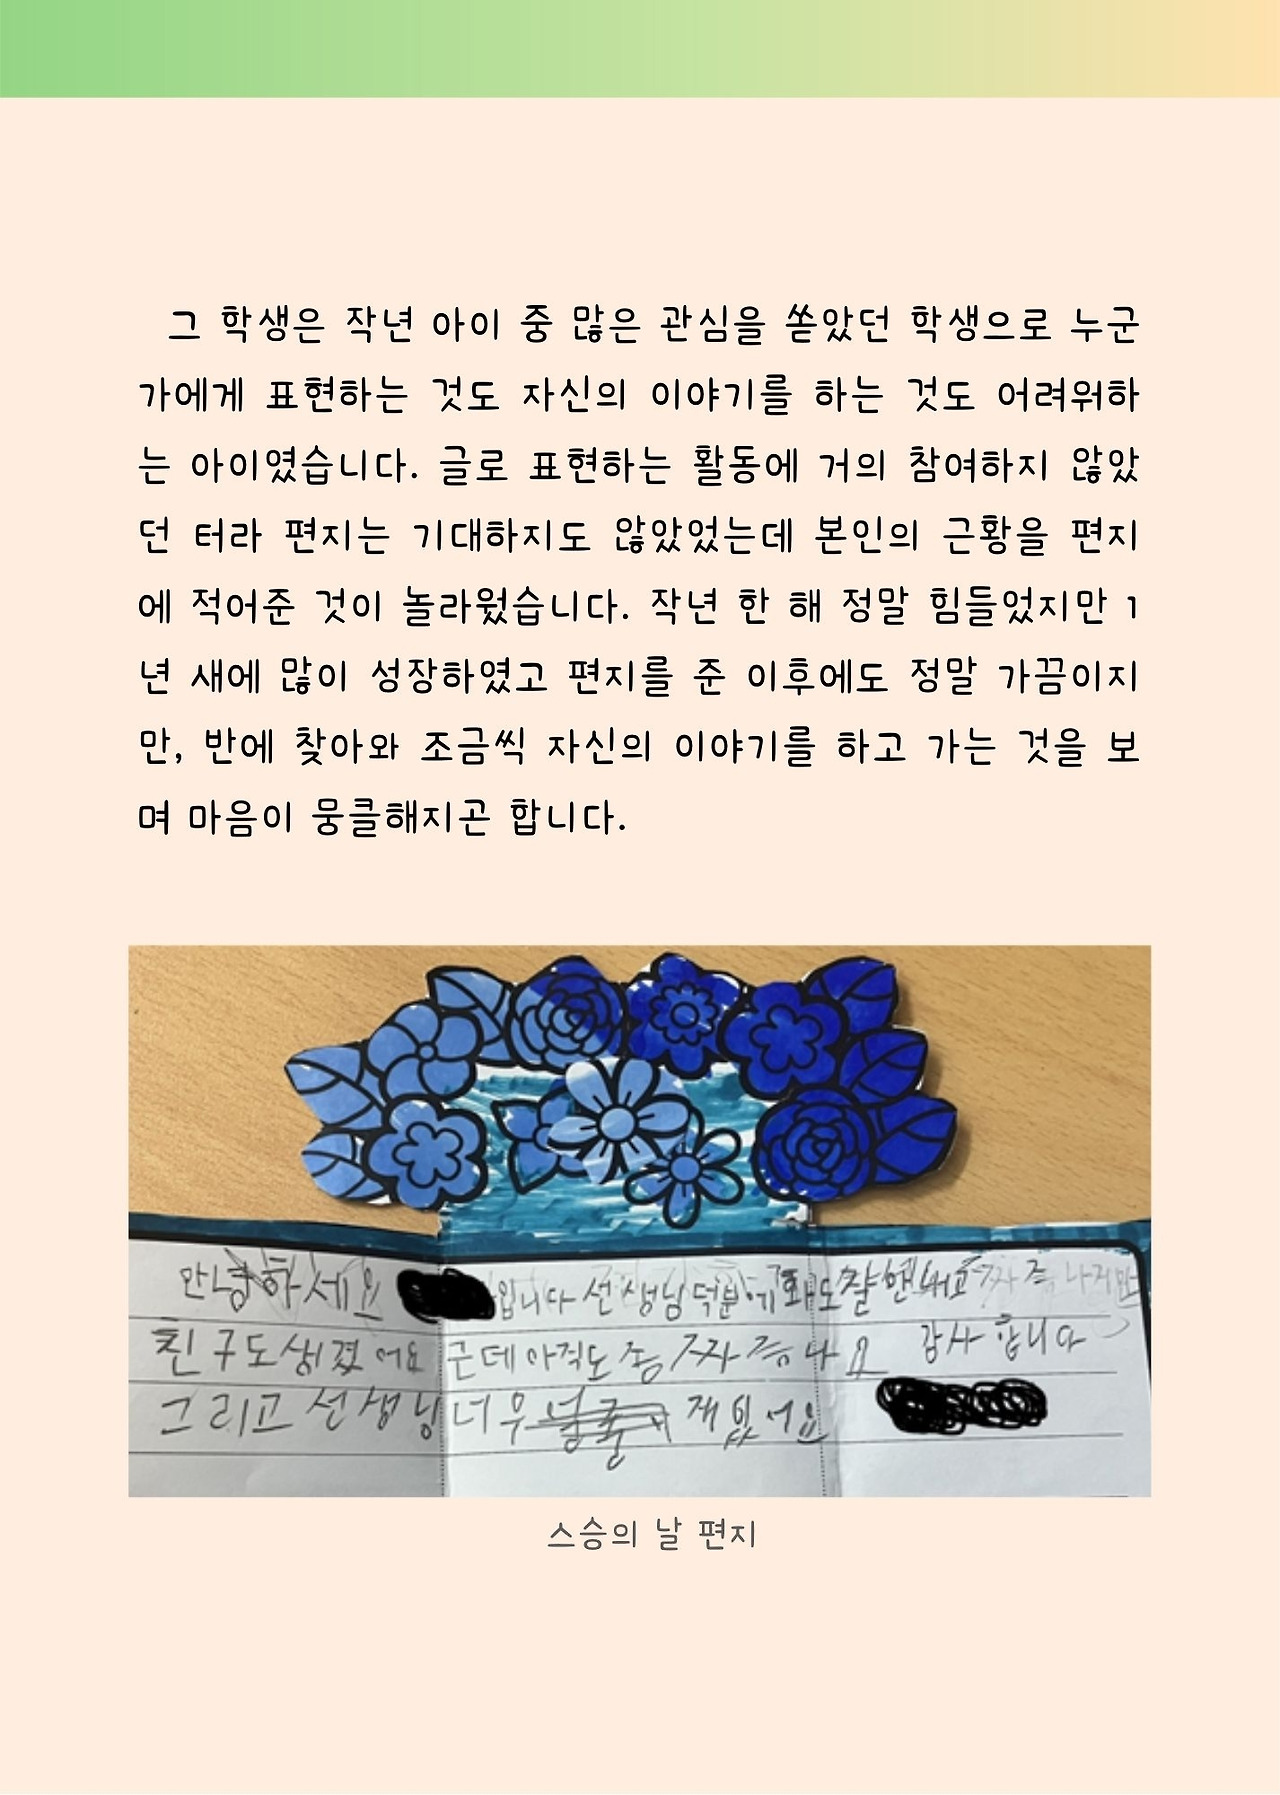 그 학생은 작년 아이 중 많은 관심을 쏟았던 학생으로 누군
가에게 표현하는 것도 자신의 이야기를 하는 것도 어려워하
는 아이였습니다. 글로 표현하는 활동에 거의 참여하지 않았
던 터라 편지는 기대하지도 않았었는데 본인의 근황을 편지
에 적어준 것이 놀라웠습니다. 작년 한 해 정말 힘들었지만 1
년 새에 많이 성장하였고 편지를 준 이후에도 정말 가끔이지
만, 반에 찾아와 조금씩 자신의 이야기를 하고 가는 것을 보
며 마음이 뭉클해지곤 합니다.
안녕하세요 입니다 선생님 덕분에 화도 잘
친구도 생겼어요 근데 아직도 좀 짜증나요 감사합니다
그리고 선생님 너무 재밌어요
스승의 날 편지